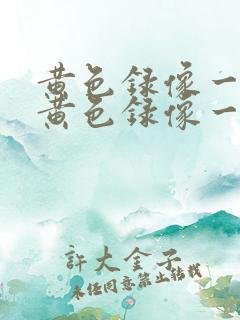 黄色録像一
黄色録像一
許大金子
未経同意禁止轉載